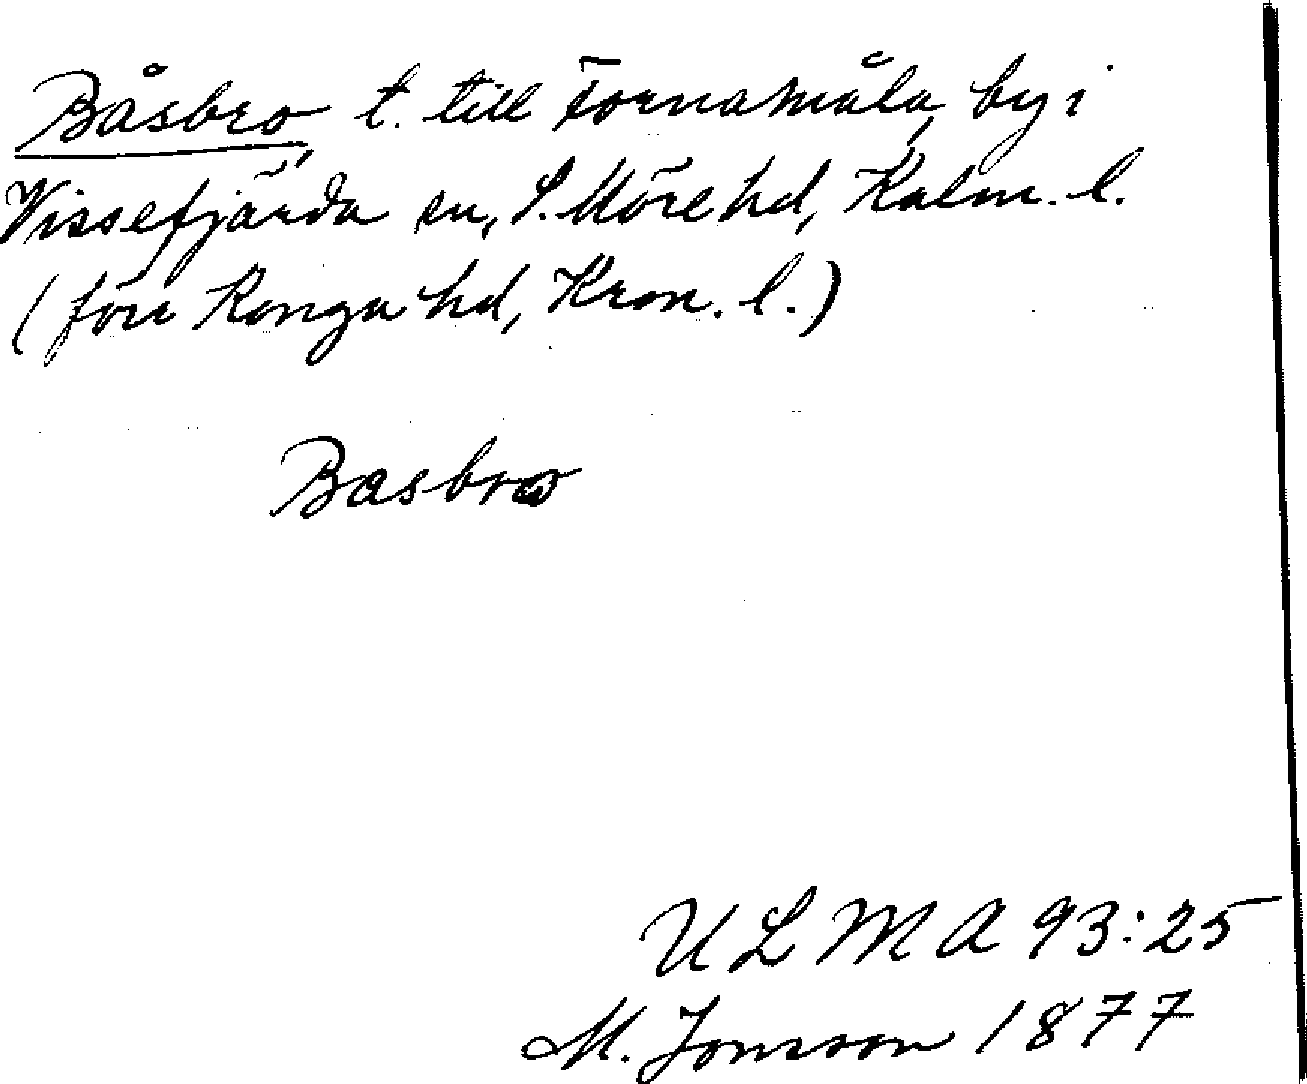 Båsbro, t. till Fornamåla, by i
Vissefjärda sn, S. Möre hd, Kalm. l.
(förr Konga hd, Kron. l.)
Basbro
ULMA 93:25
M. Jonsson 1877